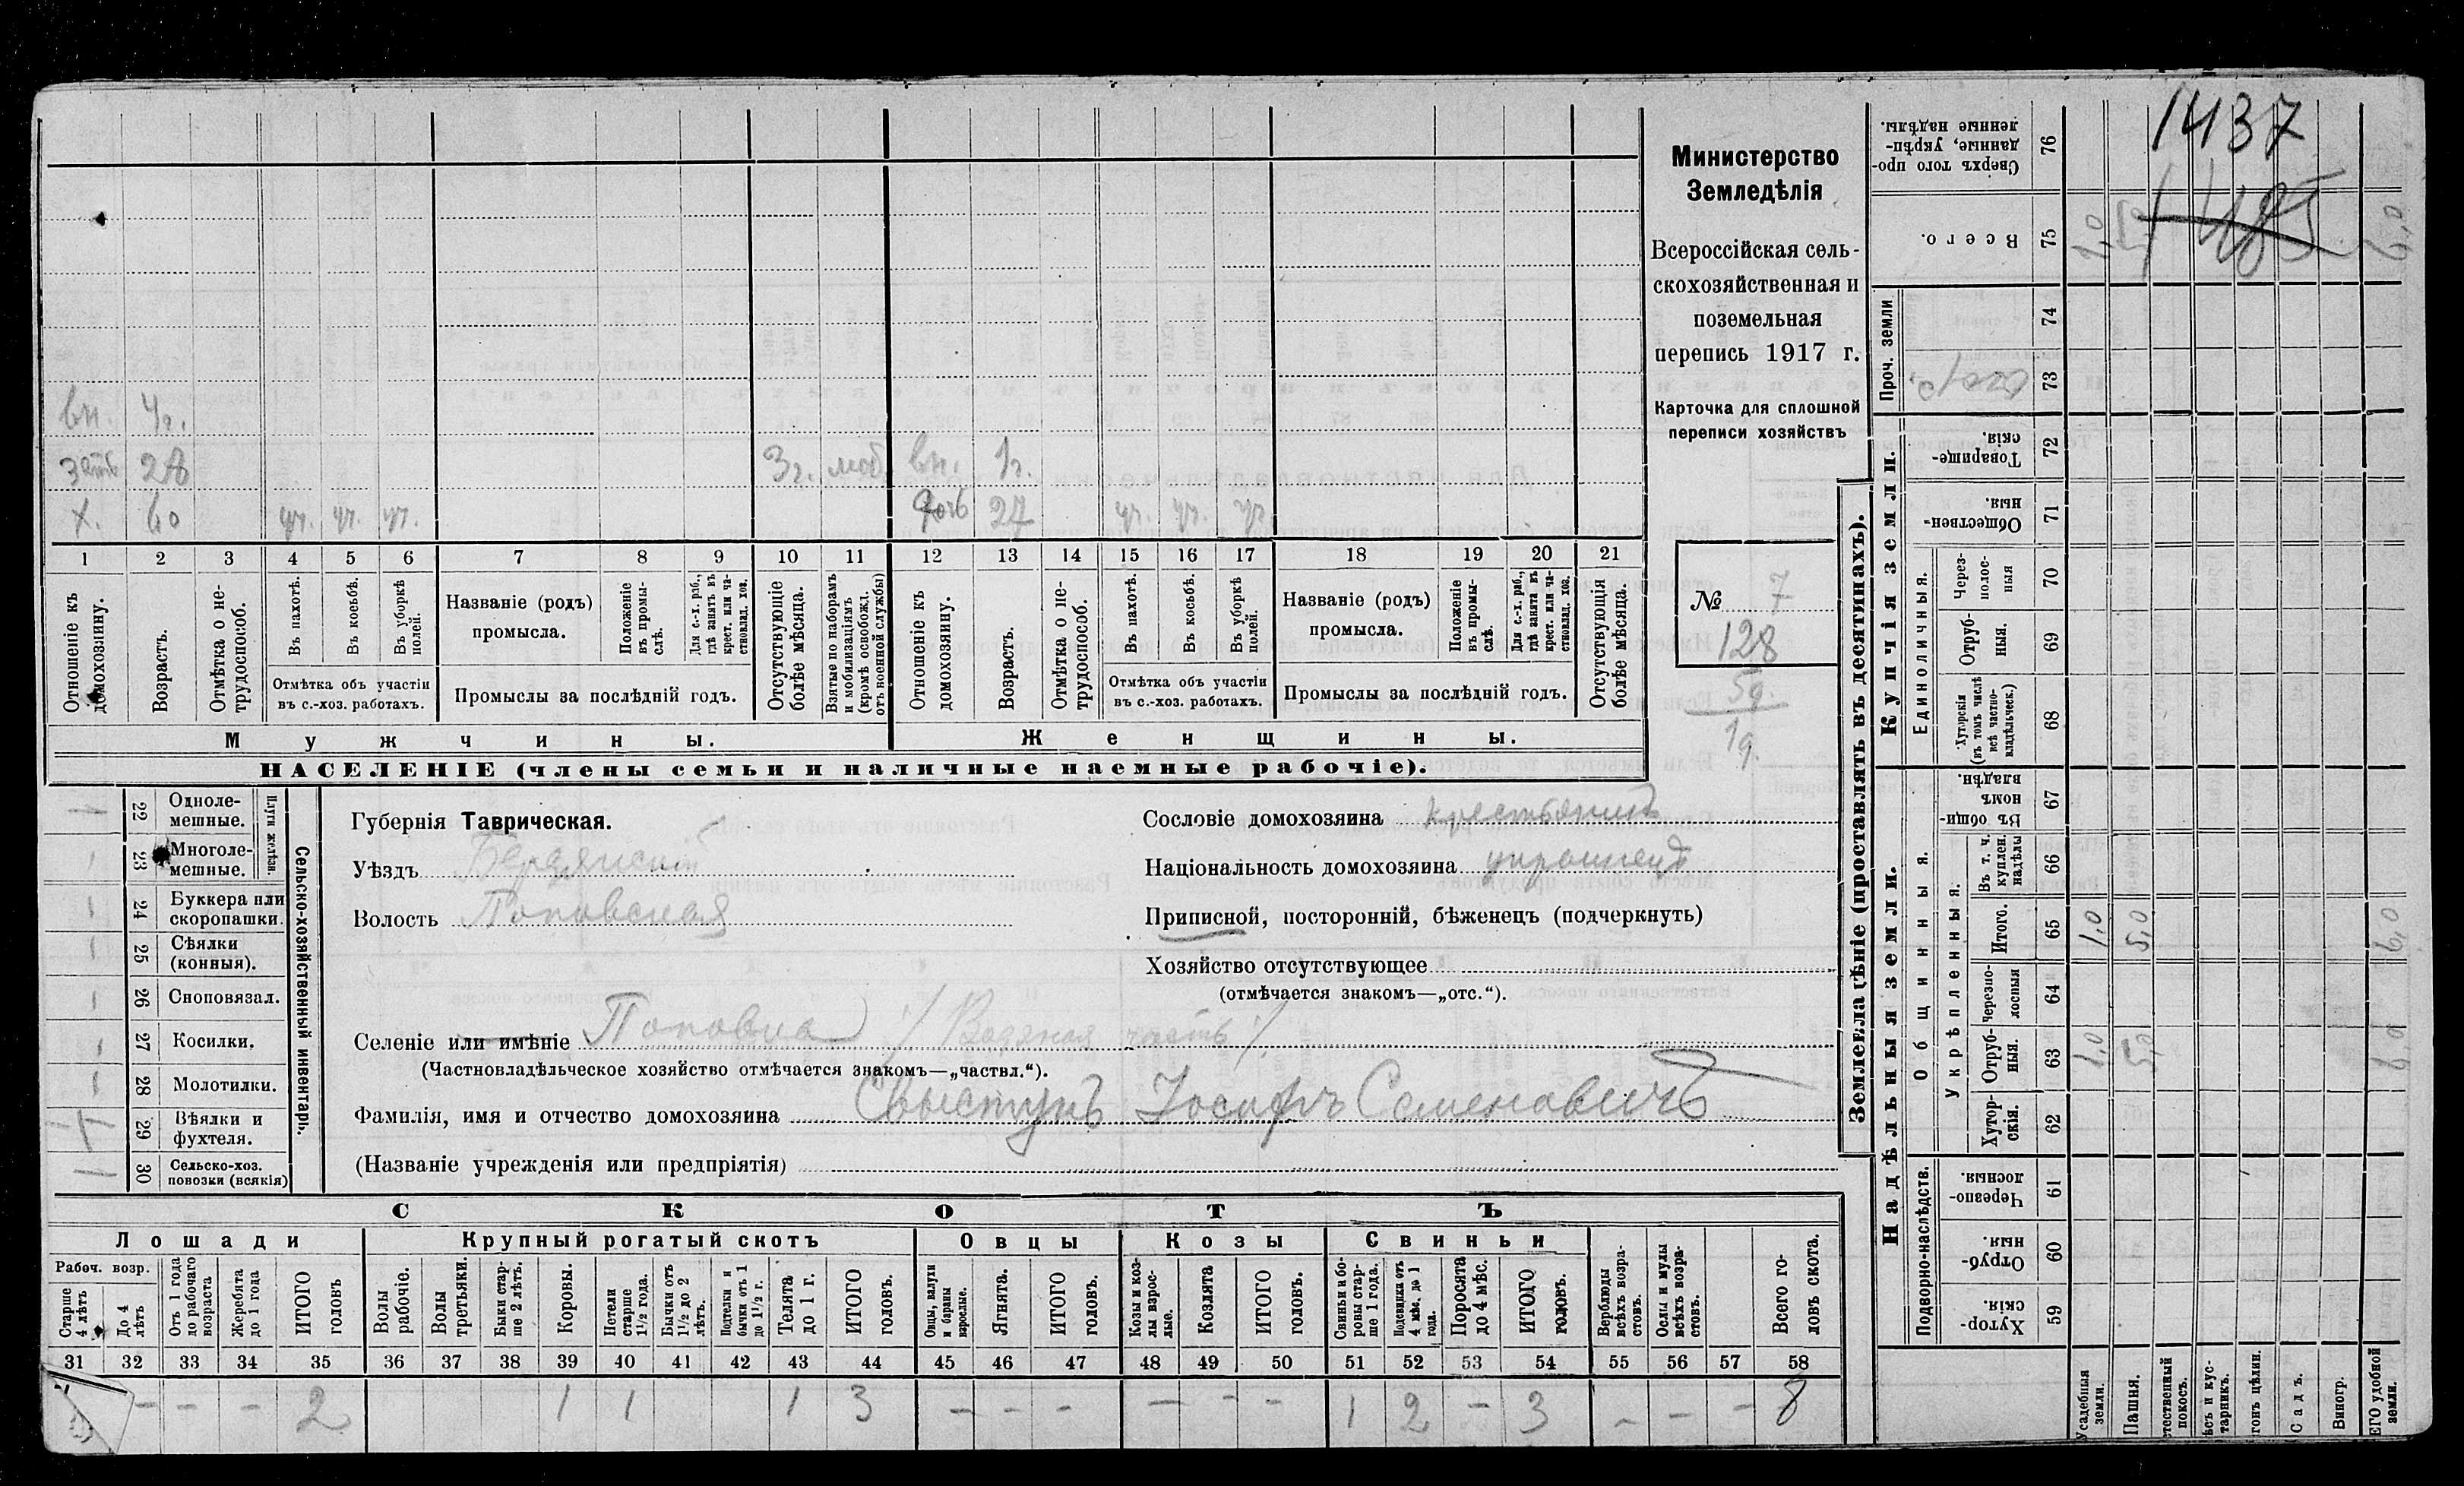 вн. 4г.
зять 28 3г. моб. вн. 1г.
х. 60 уч. уч. уч. дочь 27 уч. уч. уч.
1 2 3 4 5 6 7 8 9 10 11 12 13 14 15 16 17 18 19 20 21
Отношеніе къ домохозяину.
Возрастъ.
Отмѣтка о не-
трудоспособ.
Въ пахотѣ.
Въ косьбѣ.
Въ уборкѣ полей.
Отмѣтка объ участіи
въ с.-хоз. работахъ.
Названіе (родъ)
промысла.
Положеніе
въ промы-
слѣ.
Для с.-х. раб.,
гдѣ занятъ въ
крест. или ча-
стновлад. хоз.
Промыслы за послѣдній годъ.
Отсутствующіе
болѣе мѣсяца.
Взятые по наборамъ
и мобилизаціямъ
(кромѣ освобожд.
отъ военной службы)
Отношеніе къ
домохозяину.
Возрастъ.
Отмѣтка о не-
трудоспособ.
Въ пахотѣ.
Въ косьбѣ.
Въ уборкѣ
полей.
Отмѣтка объ участіи
въ с.-хоз. работахъ.
Названіе (родъ)
промысла.
Положеніе
въ промы-
слѣ.
Для с.-х. раб.,
гдѣ занята въ
крест. или ча-
стновлад. хоз.
Промыслы за послѣдній годъ.
Отсутствующія
болѣе мѣсяца.
Мужчины.
Женщины.
НАСЕЛЕНІЕ (члены семьи и наличные наемные рабочіе).
Министерство
Земледѣлія
Всероссійская сель-
скохозяйственная и
поземельная
перепись 1917 г.
Карточка для сплошной
переписи хозяйствъ
№ 7
128
59.
19.
Сельско-хозяйственный инвентарь.
Плуги желѣзн.
22 Одноле-
мешные.
23 Многоле-
мешные.
24 Буккера или
скоропашки.
25 Сѣялки
(конныя).
26 Сноповязал.
27 Косилки.
28 Молотилки.
29 Вѣялки и
фухтеля.
30 Сельско-хоз.
повозки (всякія)
Губернія Таврическая.
Уѣздъ Бердянскій
Волость Поповская
Сословіе домохозяина крестьянинъ
Національность домохозяина украинецъ
Приписной, посторонній, бѣженецъ (подчеркнуть)
Хозяйство отсутствующее
(отмѣчается знакомъ—„отс.“).
Селеніе или имѣніе Поповка /Водяная часть/
(Частновладѣльческое хозяйство отмѣчается знакомъ—„частвл.“).
Фамилія, имя и отчество домохозяина Свыстунъ Іосифъ Семеновичъ
(Названіе учрежденія или предпріятія)
СКОТЪ
Лошади Крупный рогатый скотъ Овцы Козы Свиньи
Рабоч. возр.
Старше
4 лѣтъ
До 4
лѣтъ
Отъ 1 года
до рабочаго
возраста
Жеребята
до 1 года
ИТОГО
головъ
Волы
рабочіе.
Волы
третьяки.
Бычки стар-
ше 2 лѣтъ.
Коровы.
Нетели
старше
1½ года.
Бычки отъ
1½ до 2
лѣтъ.
Подтелки и
бычки отъ 1
до 1½ г.
Телята
до 1 г.
ИТОГО
головъ.
Овцы, валухи
и бараны
взрослые.
Ягнята.
ИТОГО
головъ.
Козы и коз-
лы взрос-
лые.
Козлята
ИТОГО
головъ.
Свиньи и бо-
ровы стар-
ше 1 года.
Подсвинки отъ
4 мѣс. до 1
года.
Поросята
до 4 мѣс.
ИТОГО
головъ.
Верблюды
всѣхъ возра-
стовъ.
Ослы и мулы
всѣхъ возра-
стовъ.
Всего го-
ловъ скота.
31 32 33 34 35 36 37 38 39 40 41 42 43 44 45 46 47 48 49 50 51 52 53 54 55 56 57 58
— — — 2 1 1 1 3 — — — — — — 1 2 — 3 — — — 8
1437
1485
Землевладѣніе (проставлять въ десятинахъ).
Купчія земли.
Надѣльныя земли.
76 Сверхъ того про-
данные, укрѣп-
ленные надѣлы.
75 Всего. 1,0 5,0 6,0
Проч. земли
74
73
72 Товарище-
скія.
71 Обществен-
ныя.
Единоличныя.
70 Через-
полос-
ныя
69 Отруб-
ныя.
68 Хуторскія
(въ томъ числѣ
всѣ частно-
владѣльческ.)
Общинныя.
67 Въ общи-
номъ
владѣн.
Укрѣпленныя.
66 Въ т. ч.
куплен.
надѣлы
65 Итого. 1,0 5,0 6,0
64 Черезпо-
лосныя
63 Отруб-
ныя. 1,0 5,0 6,0
62 Хутор-
скія.
Подворно-наслѣдств.
61 Черезпо-
лосныя.
60 Отруб-
ныя.
59 Хутор-
скія.
Усадебныя
земли.
Пашня.
стественный
покосъ.
ѣсъ и кус-
тарникъ.
гонъ цѣлин.
Садъ.
Виногр.
ЕГО удобной
земли.